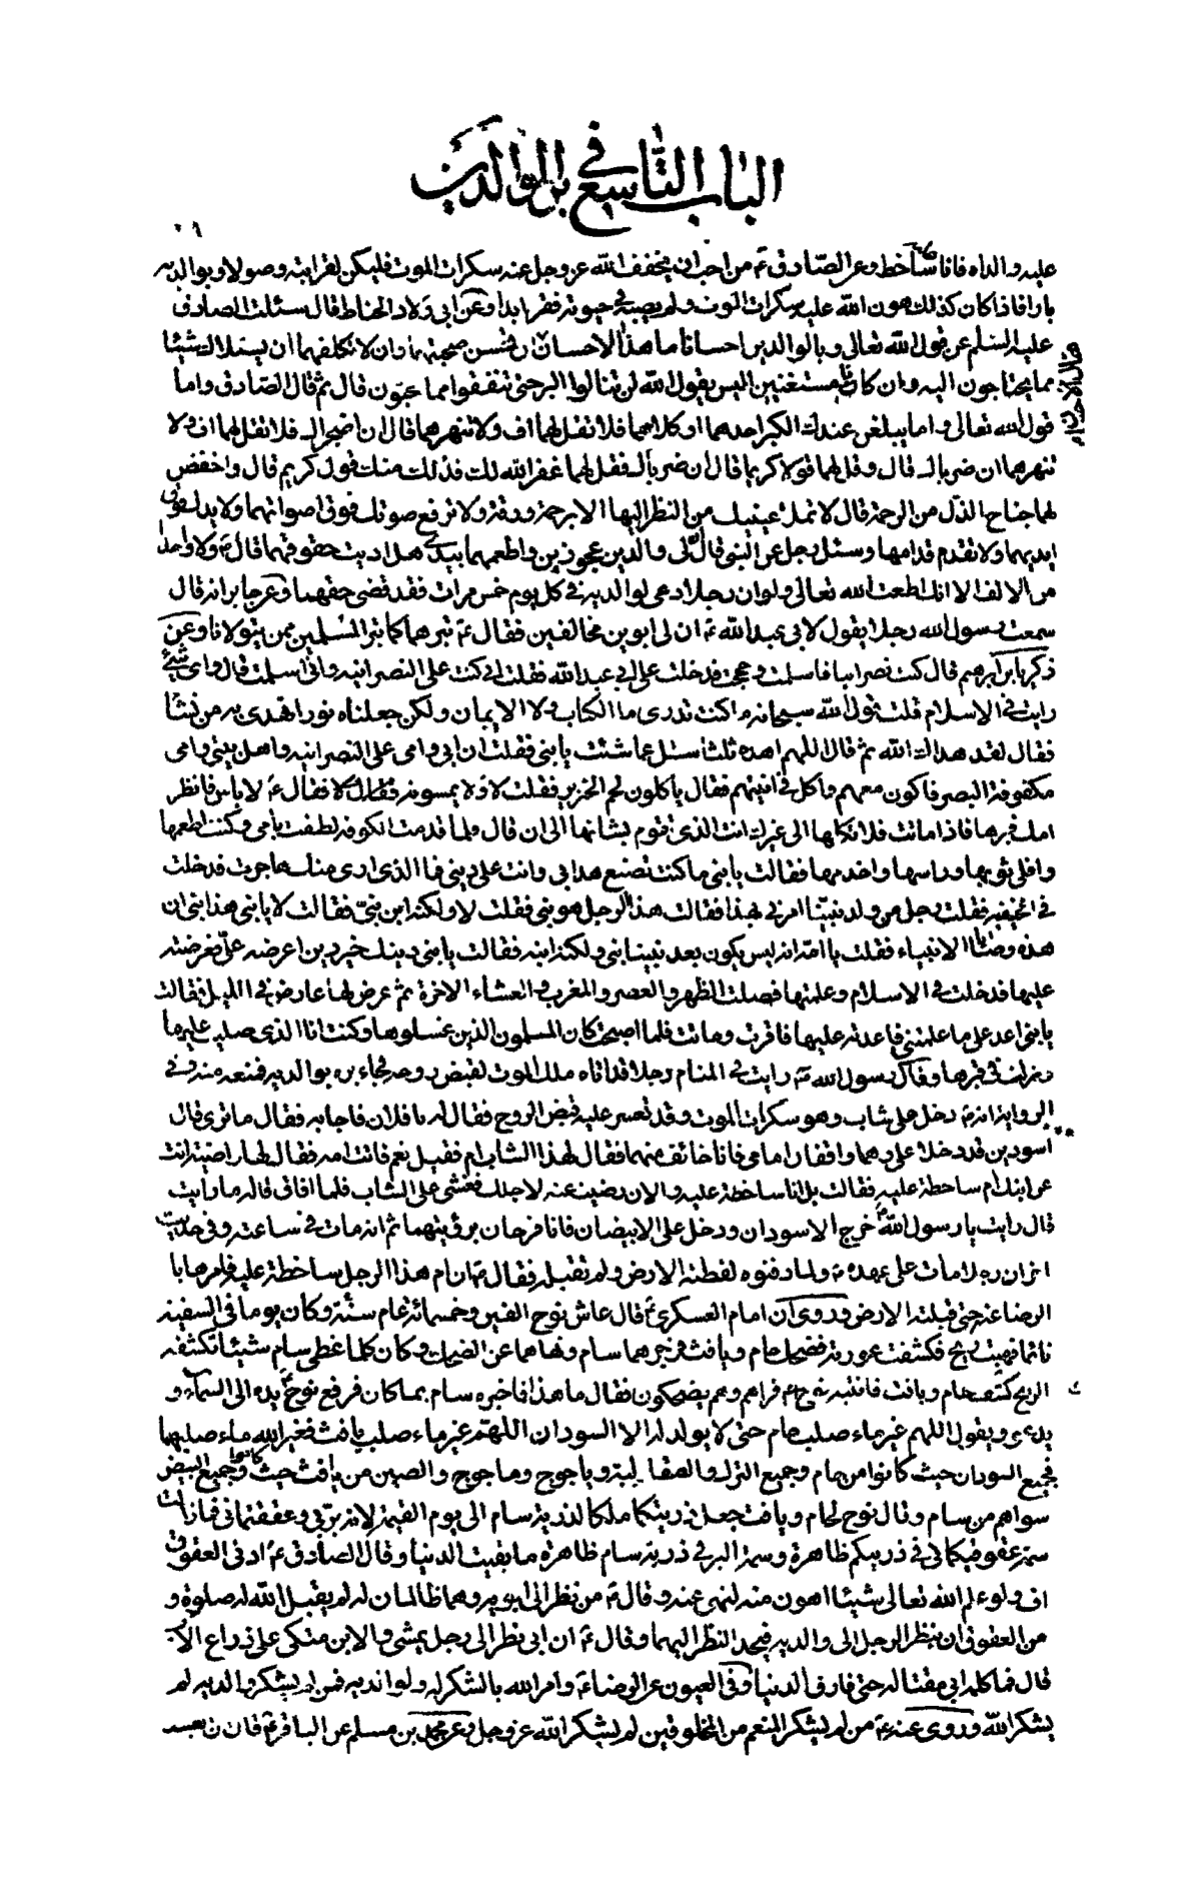 الباب التاسع في بر الوالدين
عليه والداه فانا ساخط وعن الصادق ع من احب ان يخفف الله عز وجل عنه سكرات الموت فليكن لقرابته وصولا وبوالديه
بارا فاذا كان كذلك هون الله عليه سكرات الموت ولم يصبه في حيوته فقر ابدا وعن ابي ولاد الحناط قال سئلت الصادق
عليه السلم عن قول الله تعالى وبالوالدين احسانا ما هذا الاحسان ان تحسن صحبتهما وان لا تكلفهما ان يسئلاك شيئا
مما يحتاجون اليه وان كانا مستغنيين اليس يقول الله لن تنالوا البر حتى تنفقوا مما تحبون قال ثم قال الصادق واما
قول الله تعالى واما يبلغن عندك الكبر احدهما او كلاهما فلا تقل لهما اف ولا تنهرهما قال ان اضجراك فلا تقل لهما اف ولا
تنهرهما ان ضرباك قال وقل لهما قولا كريما قال ان ضرباك فقل لهما غفر الله لك فذلك منك قول كريم قال واخفض
لهما جناح الذل من الرحمة قال لا تملأ عينيك من النظر اليها الا برحمة ورقة ولا ترفع صوتك فوق اصواتهما ولا يدك فوق
ايديهما ولا تقدم قدامها وسئل رجل عن النبي قال ان لي والدين عجوزين واطعمهما بيدي هل اديت حقوقهما قال ع ولا واحدا
من الالف الا انك اطعت الله تعالى ولو ان رجلا دعى لوالديه في كل يوم خمس مرات فقد قضى حقهما وعن جابر انه قال
سمعت رسول الله رجلا يقول لابي عبد الله ع ان لي ابوين مخالفين فقال ع تبرهما كما تبر المسلمين ممن يتولانا وعن
ذكريا بن ابرهيم قال كنت نصرانيا فاسلمت وحججت فدخلت على ابي عبد الله فقلت اني كنت على النصرانيه واني اسلمت قال واي شيئ
رايت في الاسلام قلت قول الله سبحانه ما كنت تدرى ما الكتاب ولا الايمان ولكن جعلناه نورا نهدى به من نشا
فقال لقد هداك الله ثم قال اللهم اهده ثلثا سئل عما شئت يا بني فقلت ان ابي وامي على النصرانيه واهل بيتي وامي
مكفوفة البصر فاكون معهم واكل في انيتهم فقال ياكلون لحم الخنزير فقلت لا ولا يمسونه فقال لا فقال ع لا باس فانظر
امك فبرها فاذا ماتت فلا تكلها الى غيرك انت الذى تقوم بشانها الى ان قال ولما قدمت الكوفه لطفت بامي وكنت اطعمها
وافلي ثوبها وراسها واخدمها فقالت يا بني ما كنت تصنع هذا بي وانت على ديني فما الذى ارى منك هاجرت فدخلت
في الحنيفيه فقلت رجل من ولد نبينا امرني بهذا فقالت هذا الرجل هو نبي فقلت لا ولكنه ابن نبي فقالت لا يا بني هذا نبي ان
هذه وصايا الانبياء فقلت يا امه انه ليس يكون بعد نبينا نبي ولكنه ابنه فقالت يا بني دينك خير دين اعرضه علي فعرضته
عليها فدخلت في الاسلام وعلمتها فصلت الظهر والعصر والمغرب والعشاء الاخرة ثم عرض لها عارض في الليل فقالت
يا بني اعد علي ما علمتني فاعدته عليها فاقرت وماتت فلما اصبحت كان المسلمون الذين غسلوها وكنت انا الذى صليت عليها
ونزلت في قبرها وقال رسول الله ص رايت في المنام رجلا قد اتاه ملك الموت لقبض روحه فجاء بره بوالديه فمنعه منه وفي
الرواية انه ع دخل على شاب وهو سكرات الموت وقد تعسر عليه قبض الروح فقال له يا فلان فاجابه فقال ما ترى قال
اسودين قد دخلا علي وهما واقفان امامي فانا خائف منهما فقال لهذا الشاب ام فقيل نعم فاتت امه فقال لها راضية انت
عن ابنك ام ساخطة عليه فقالت بل انا ساخطة عليه والان رضيت عنه لاجلك فغشى على الشاب فلما افاق قال له ما رايت
قال رايت يا رسول الله خرج الاسودان ودخل علي الابيضان فانا فرحان برؤيتهما ثم انه مات في ساعته وفي حديث
اخر ان رجلا مات على عهده ص ولما دفنوه لفظته الارض ولم تقبله فقال ص ان ام هذا الرجل ساخطة عليه فامرها با
الرضا عنه حتى قبلته الارض وروى ان امام العسكري ع قال عاش نوح الفين وخمسمائة عام سنة وكان يوما في السفينه
نائما فهبت ريح فكشفت عورته فضحك حام ويافث فزجرهما سام ونهاهما عن الضحك وكان كلما غطى سام شيئا تكشفه
الريح كشفه حام ويافث فانتبه نوح ع فراهم وهم يضحكون فقال ما هذا فاخبره سام بما كان فرفع نوح يده الى السماء و
يدعى ويقول اللهم غير ماء صلب حام حتى لا يولد له الا السودان اللهم غير ماء صلب يافث فغير الله ماء صلبهما
فجميع السودان حيث كانوا من حام وجميع الترك والصقالبة وياجوج وماجوج والصين من يافث حيث كانوا وجميع البيض
سواهم من سام وقال نوح لحام ويافث جعل ذريتكما ملكا لذرية سام الى يوم القيمة لانه بر بي وعققتماني فما زالت
سمة عقوقكما لي في ذريتكم ظاهرة وسمة البر في ذرية سام ظاهرة ما بقيت الدنيا وقال الصادق ع ادنى العقوق
اف ولو علم الله تعالى شيئا اهون منه لنهى عنه وقال ع من نظر الى ابويه وهما ظالمان له لم يقبل الله له صلوة و
من العقوق ان ينظر الرجل الى والديه فيحد النظر اليهما وقال ع ان ابي نظر الى رجل يمشى والابن متكى على ذراع الاب
قال فما كلمه ابي مقتا له حتى فارق الدنيا وفي العيون عن الرضا ع وامر الله بالشكر له ولوالديه فمن لم يشكر والديه لم
يشكر الله وروى عنه ع من لم يشكر المنعم من المخلوقين لم يشكر الله عز وجل وعن محمد بن مسلم عن الباقر ع قال ان